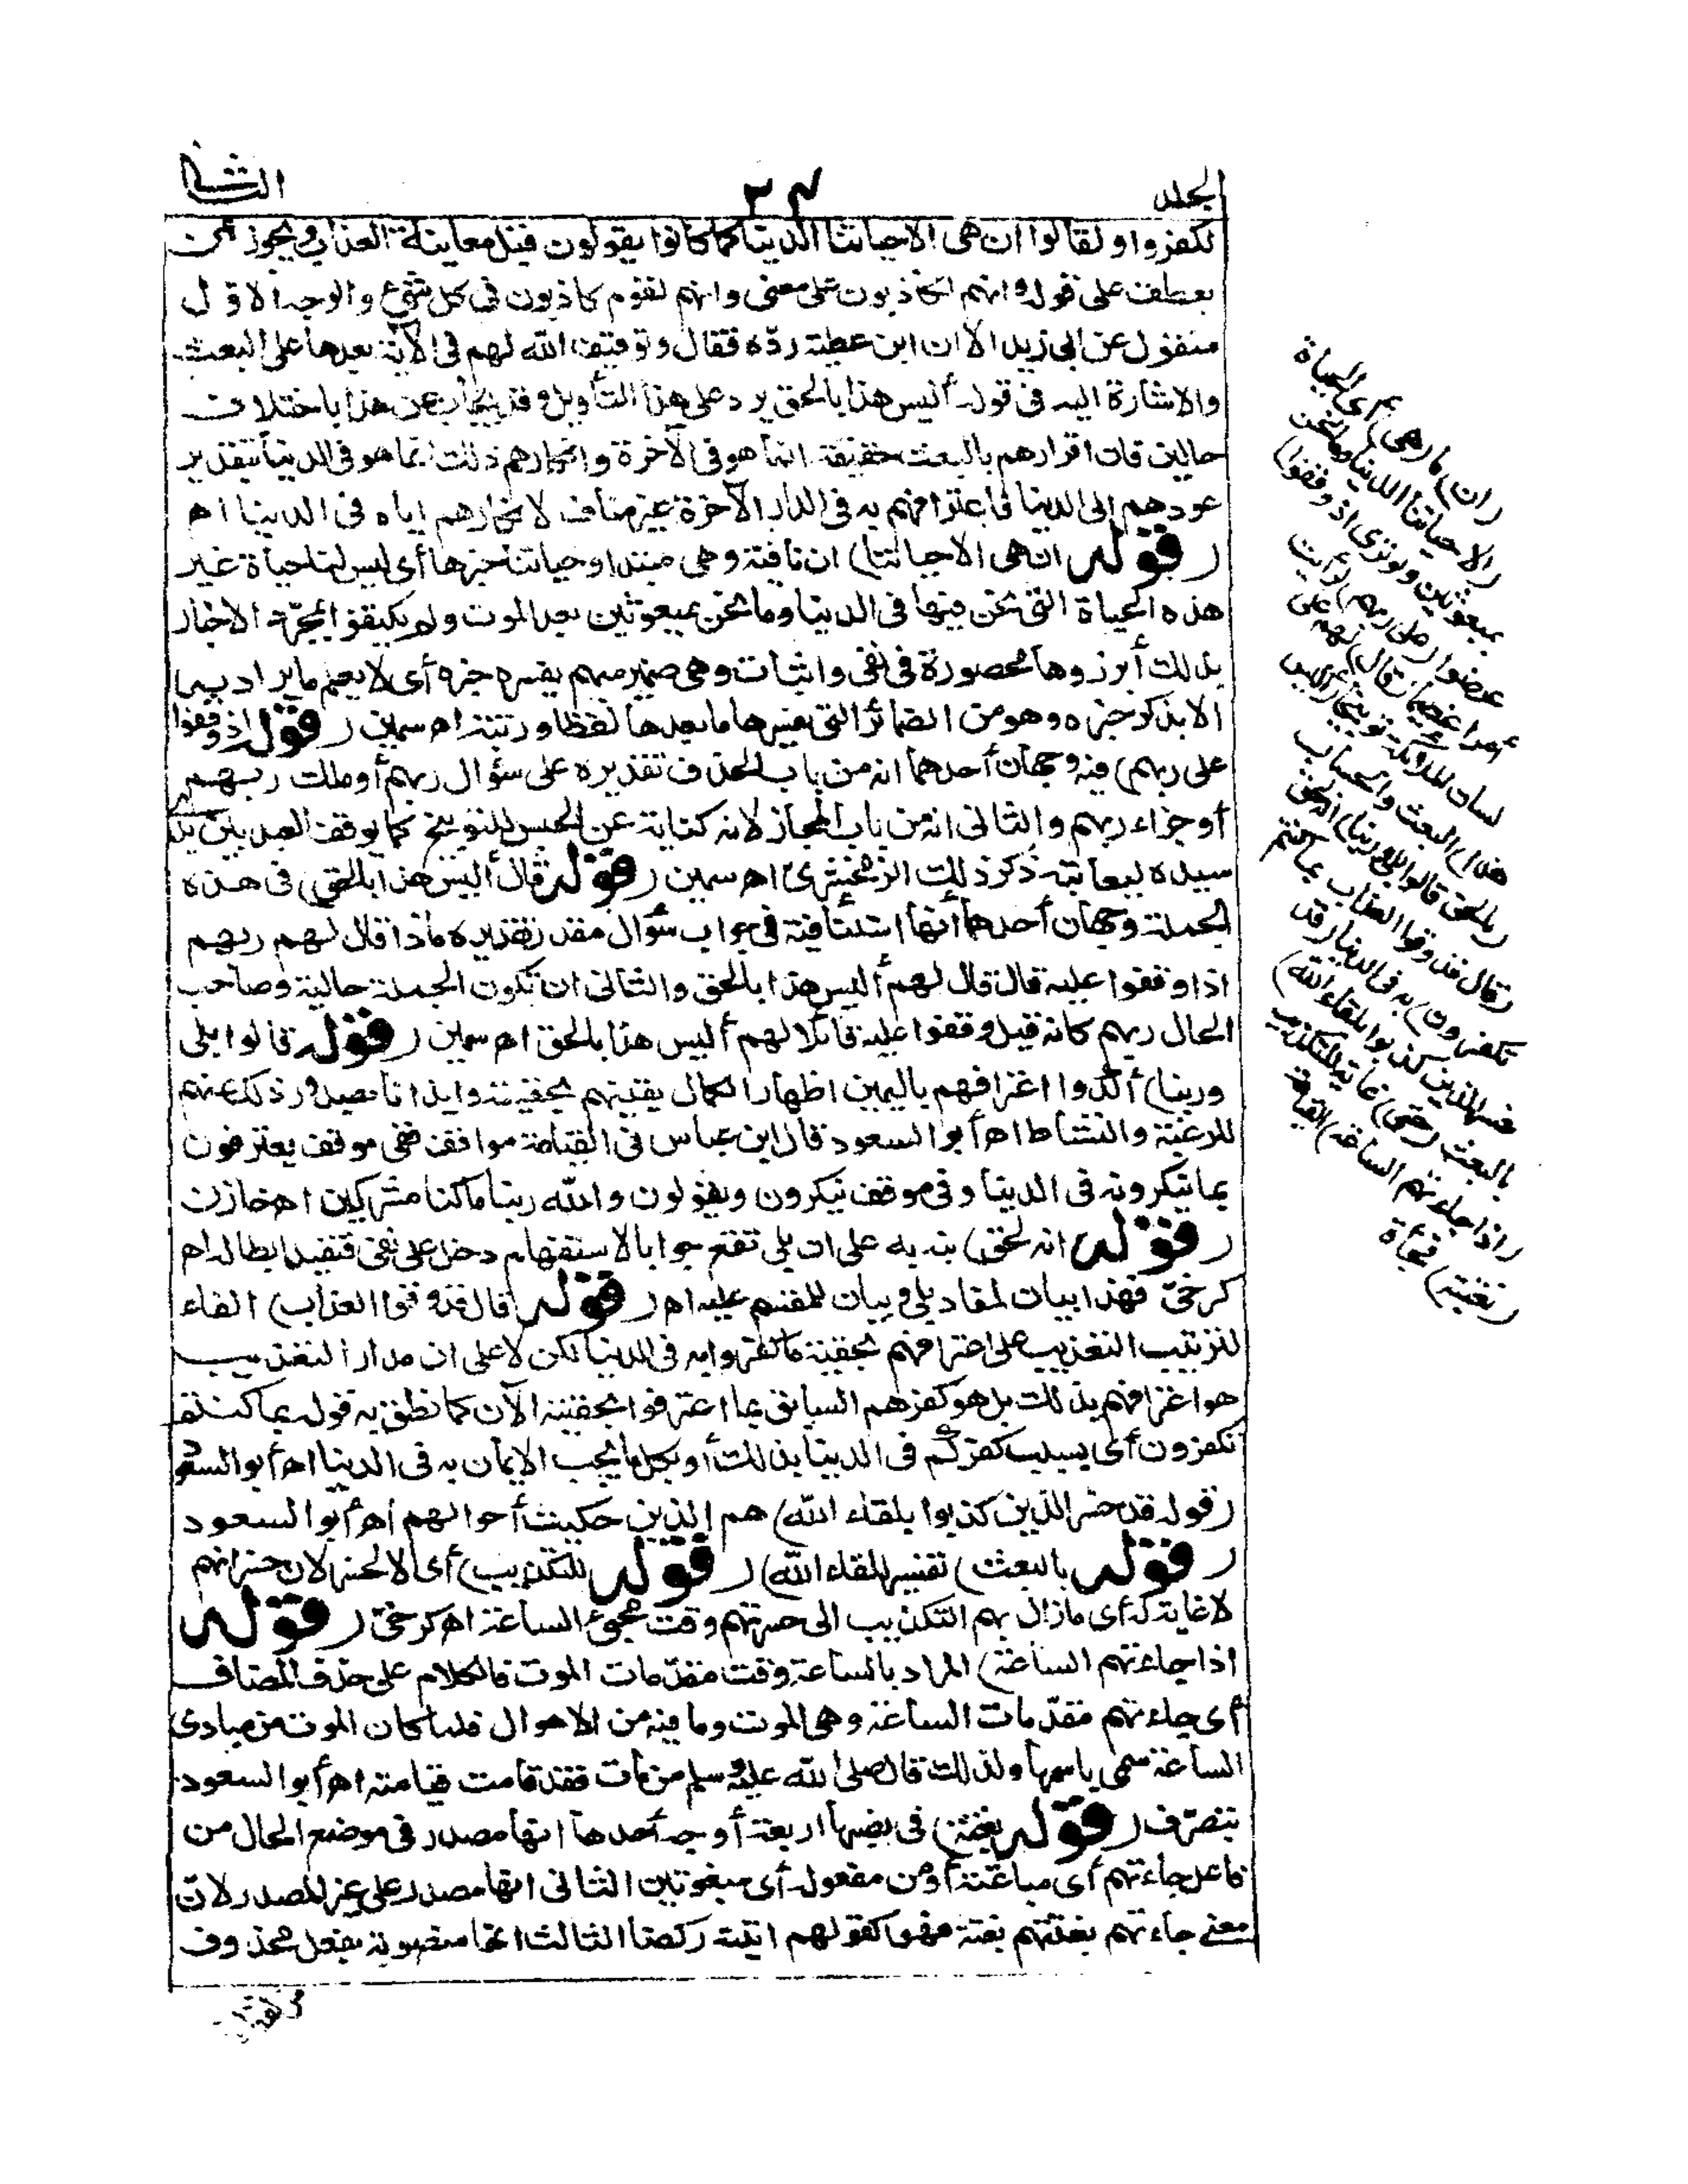 الجلد ٣٤ الثاني
لكفروا ولقالوا ان هى الا حياتنا الدنيا كما كانوا يقولون قبل معاينة العذاب ويجوز أن
يعطف على قوله وانهم لكاذبون على معنى وانهم لقوم كاذبون فى كل شئ والوجه الاوّل
منقول عن ابى زيد الا ان ابن عطية ردّه فقال وتوقيف الله لهم فى الآية بعدها على البعث
والاشارة اليه فى قوله أليس هذا بالحق يرد على هذا التأويل وقد يجاب عن هذا باختلاف
حالين فان اقرارهم بالبعث حقيقة انما هو فى الآخرة وانكارهم ذلك انما هو فى الدنيا بتقدير
عودهم الى الدنيا فاعترافهم به فى الدار الآخرة غير مناف لانكارهم اياه فى الدنيا اه
(قوله ان هى الا حياتنا) ان نافية وهى مبتدا وحياتنا خبرها أى ليس لنا حياة غير
هذه الحياة التى نحن فيها فى الدنيا وما نحن بمبعوثين بعد الموت ولم يكتفوا بمجرّد الاخبار
بذلك أبرزوها محصورة فى نفى واثبات وهى ضمير مبهم يفسره خبره أى لا يعلم ما يراد به
الا بذكر خبره وهو من الضمائر التى يفسرها ما بعدها لفظا ورتبة اه سمين (قوله اذ وقفوا
على ربهم) فيه وجهان أحدهما انه من باب الحذف تقديره على سؤال ربهم أو ملك ربهم
أو جزاء ربهم والثانى انه من باب المجاز لانه كناية عن الحبس للتوبيخ كما يوقف العبد بين يدى
سيده ليعاتبه ذكر ذلك الزمخشرى اه سمين (قوله قال أليس هذا بالحق) فى هذه
الجملة وجهان أحدهما أنها استئنافية فى جواب سؤال مقدر تقديره ماذا قال لهم ربهم
اذا وقفوا عليه قال قال لهم أليس هذا بالحق والثانى ان تكون الجملة حالية وصاحب
الحال ربهم كانه قيل وقفوا عليه قائلا لهم أليس هذا بالحق اه سمين (قوله قالوا بلى
وربنا) أكّدوا اعترافهم باليمين اظهارا لكمال يقينهم بحقيته وايذانا بصدور ذلك عنهم
للرغبة والنشاط اه أبو السعود قال ابن عباس فى القيامة مواقف ففى موقف يعترفون
بما ينكرونه فى الدنيا وفى موقف ينكرون ويقولون والله ربنا ما كنا مشركين اه خازن
(قوله انه لحق) نبه به على ان بلى تقع جوابا لاستفهام دخل على نفى فتفيد ابطاله اه
كرخىّ فهذا بيان لمفاد بلى وبيان للمقسم عليه اه (قوله قال فذوقوا العذاب) الفاء
لترتيب التعذيب على اعترافهم بحقية ما كفروا به فى الدنيا لكن لا على ان مدار التعذيب
هو اعترافهم بذلك بل هو كفرهم السابق بما اعترفوا بحقيته الآن كما نطق به قوله بما كنتم
تكفرون أى بسبب كفركم فى الدنيا بذلك أو بكل ما يجب الايمان به فى الدنيا اه أبو السعود
(قوله قد خسر الذين كذبوا بلقاء الله) هم الذين حكيت أحوالهم اه أبو السعود
(قوله بالبعث) تفسير للقاء الله) (قوله للتكذيب) أى لا لخسر لان خسرانهم
لا غاية له أى مازال بهم التكذيب الى حسرتهم وقت مجئ الساعة اه كرخىّ (قوله
اذا جاءتهم الساعة) المراد بالساعة وقت مقدّمات الموت فالكلام على حذف المضاف
أى جاءتهم مقدّمات الساعة وهى الموت وما فيه من الاهوال فلما كان الموت من مبادى
الساعة سمى باسمها ولذلك قال صلى الله عليه وسلم من مات فقد قامت قيامته اه أبو السعود
بتصرّف (قوله بغتة) فى نصبها اربعة أوجه أحدها انها مصدر فى موضع الحال من
فاعل جاءتهم أى مباغتة أو من مفعوله أى مبغوتين الثانى انها مصدر على غير المصدر لانّ
معنى جاءتهم بغتتهم بغتة فهو كقولهم اتيته ركضا الثالث انها منصوبة بفعل محذوف
(ان) ما (هى) أى الحياة
(الا حياتنا الدنيا وما نحن
بمبعوثين ولو ترى اذ وقفوا)
عرضوا (على ربهم) لرأيت
أمرا عظيما (قال) لهم على
لسان الملائكة توبيخا (أليس
هذا) البعث والحساب
(بالحق قالوا بلى وربنا) انه لحق
(قال فذوقوا العذاب بما كنتم
تكفرون) به فى الدنيا (قد
خسر الذين كذبوا بلقاء الله)
بالبعث (حتى) غاية للتكذيب
(اذا جاءتهم الساعة) القيامة
(بغتة) فجأة